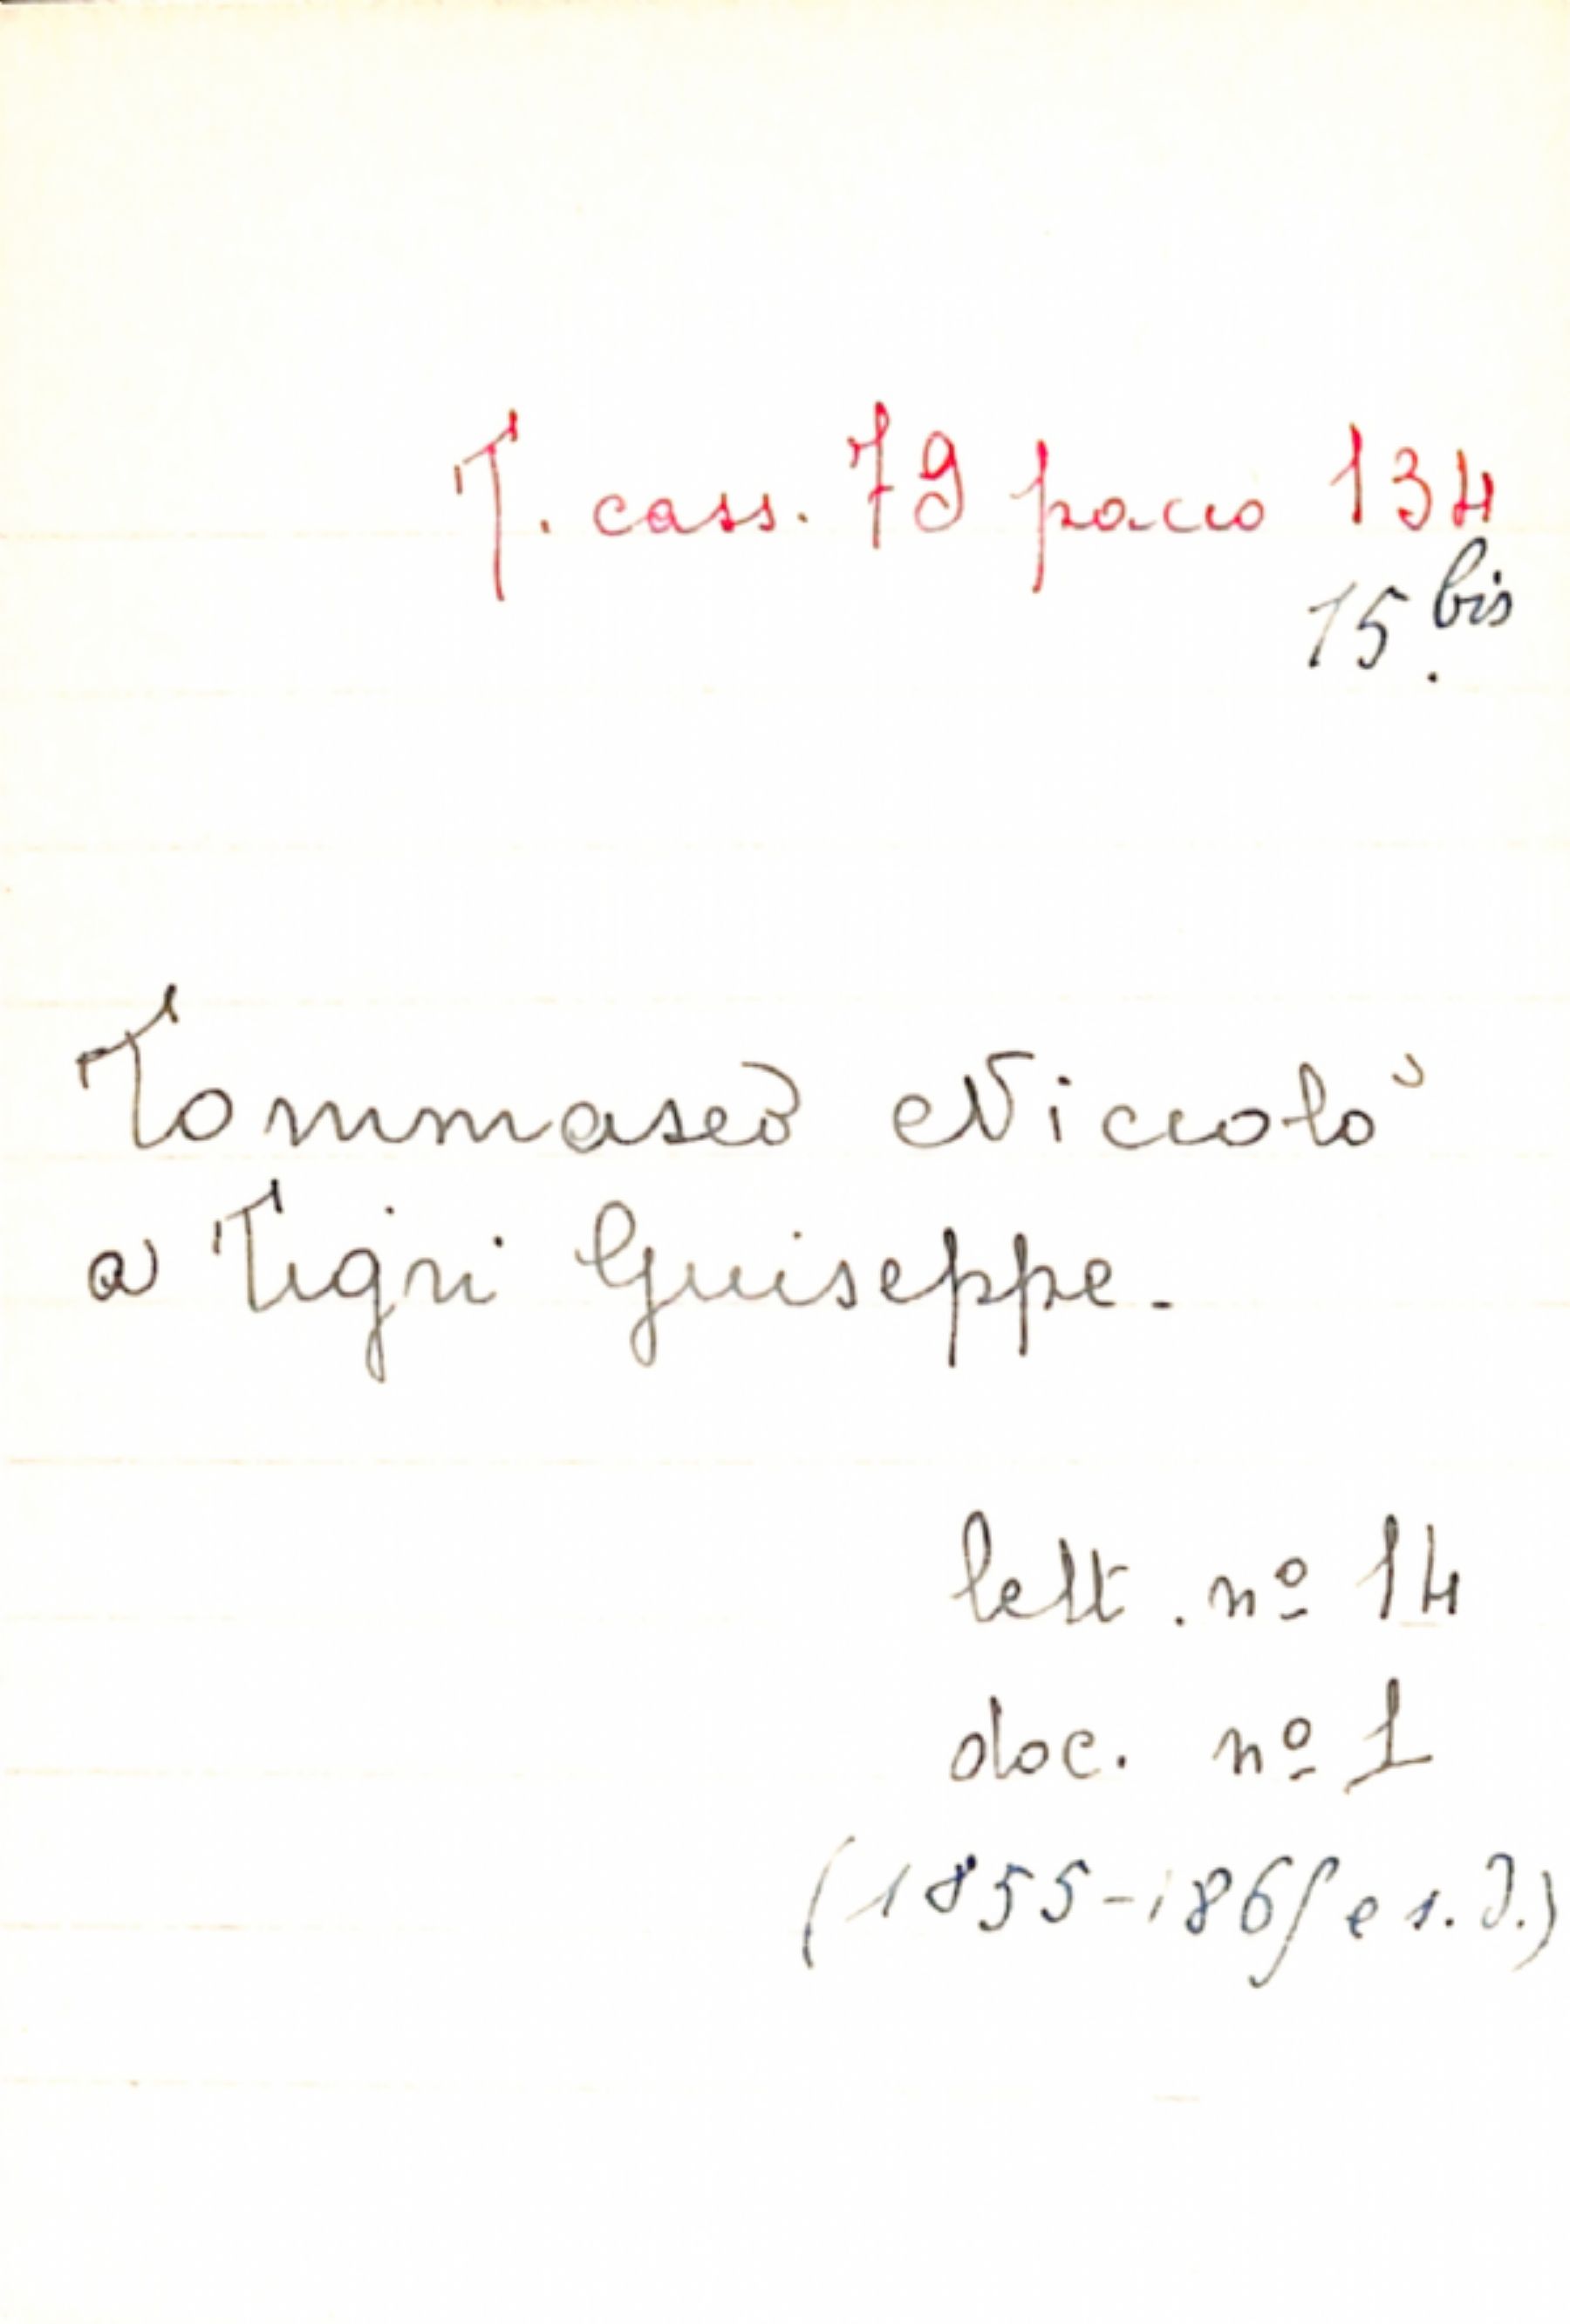 T. cass. 79 pacco 134
15.bis
Tommaseo Niccolò
a Tigri Giuseppe.
lett. nº 14
doc. nº 1
(1855- e s.d.)